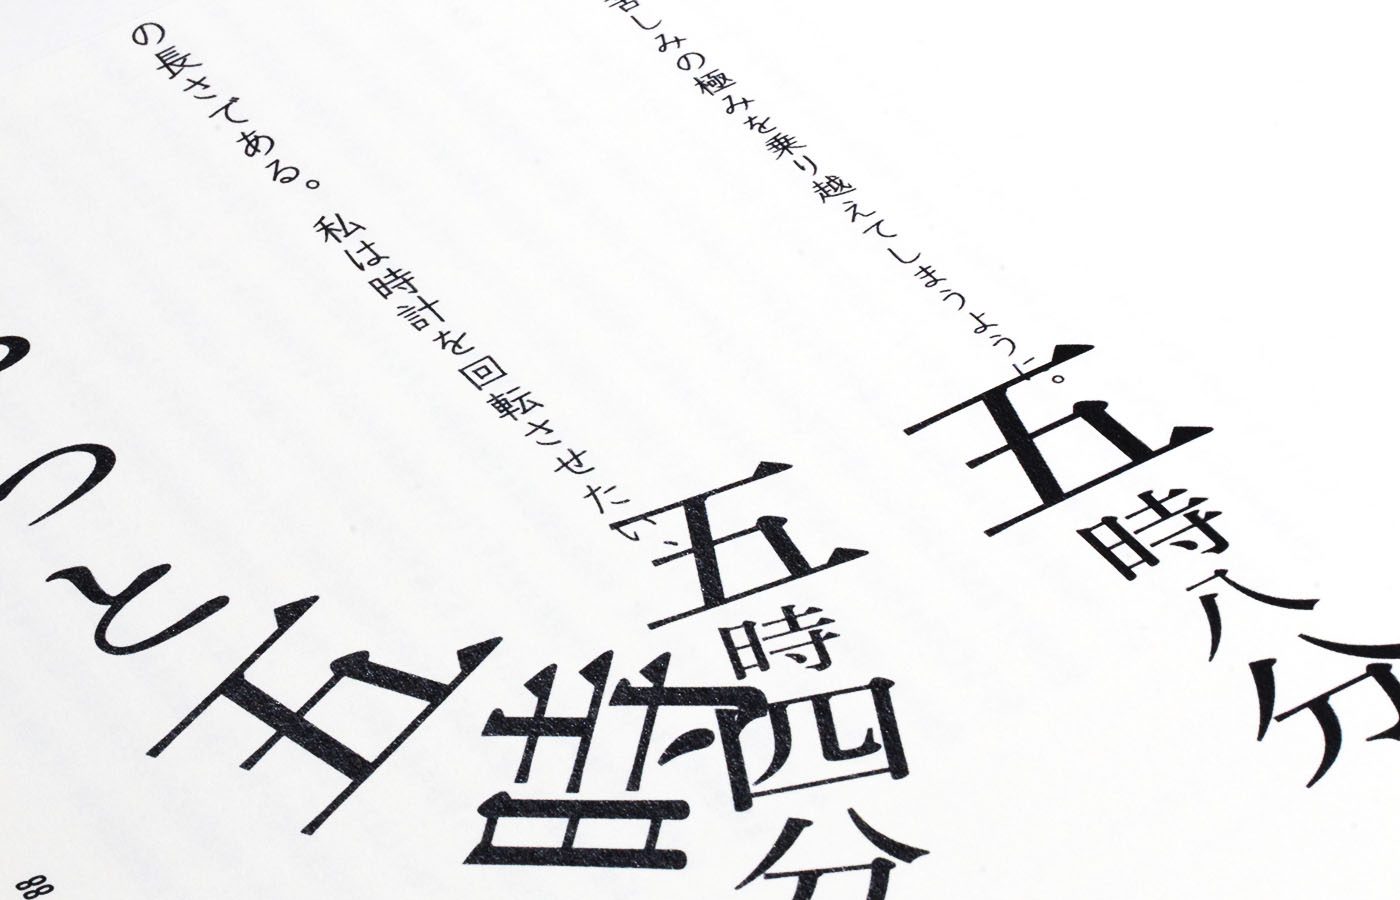 しみの極みを乗り越えてしまうように。
五時八分
の長さである。私は時計を回転させたい、
五時四分
っと五時
88